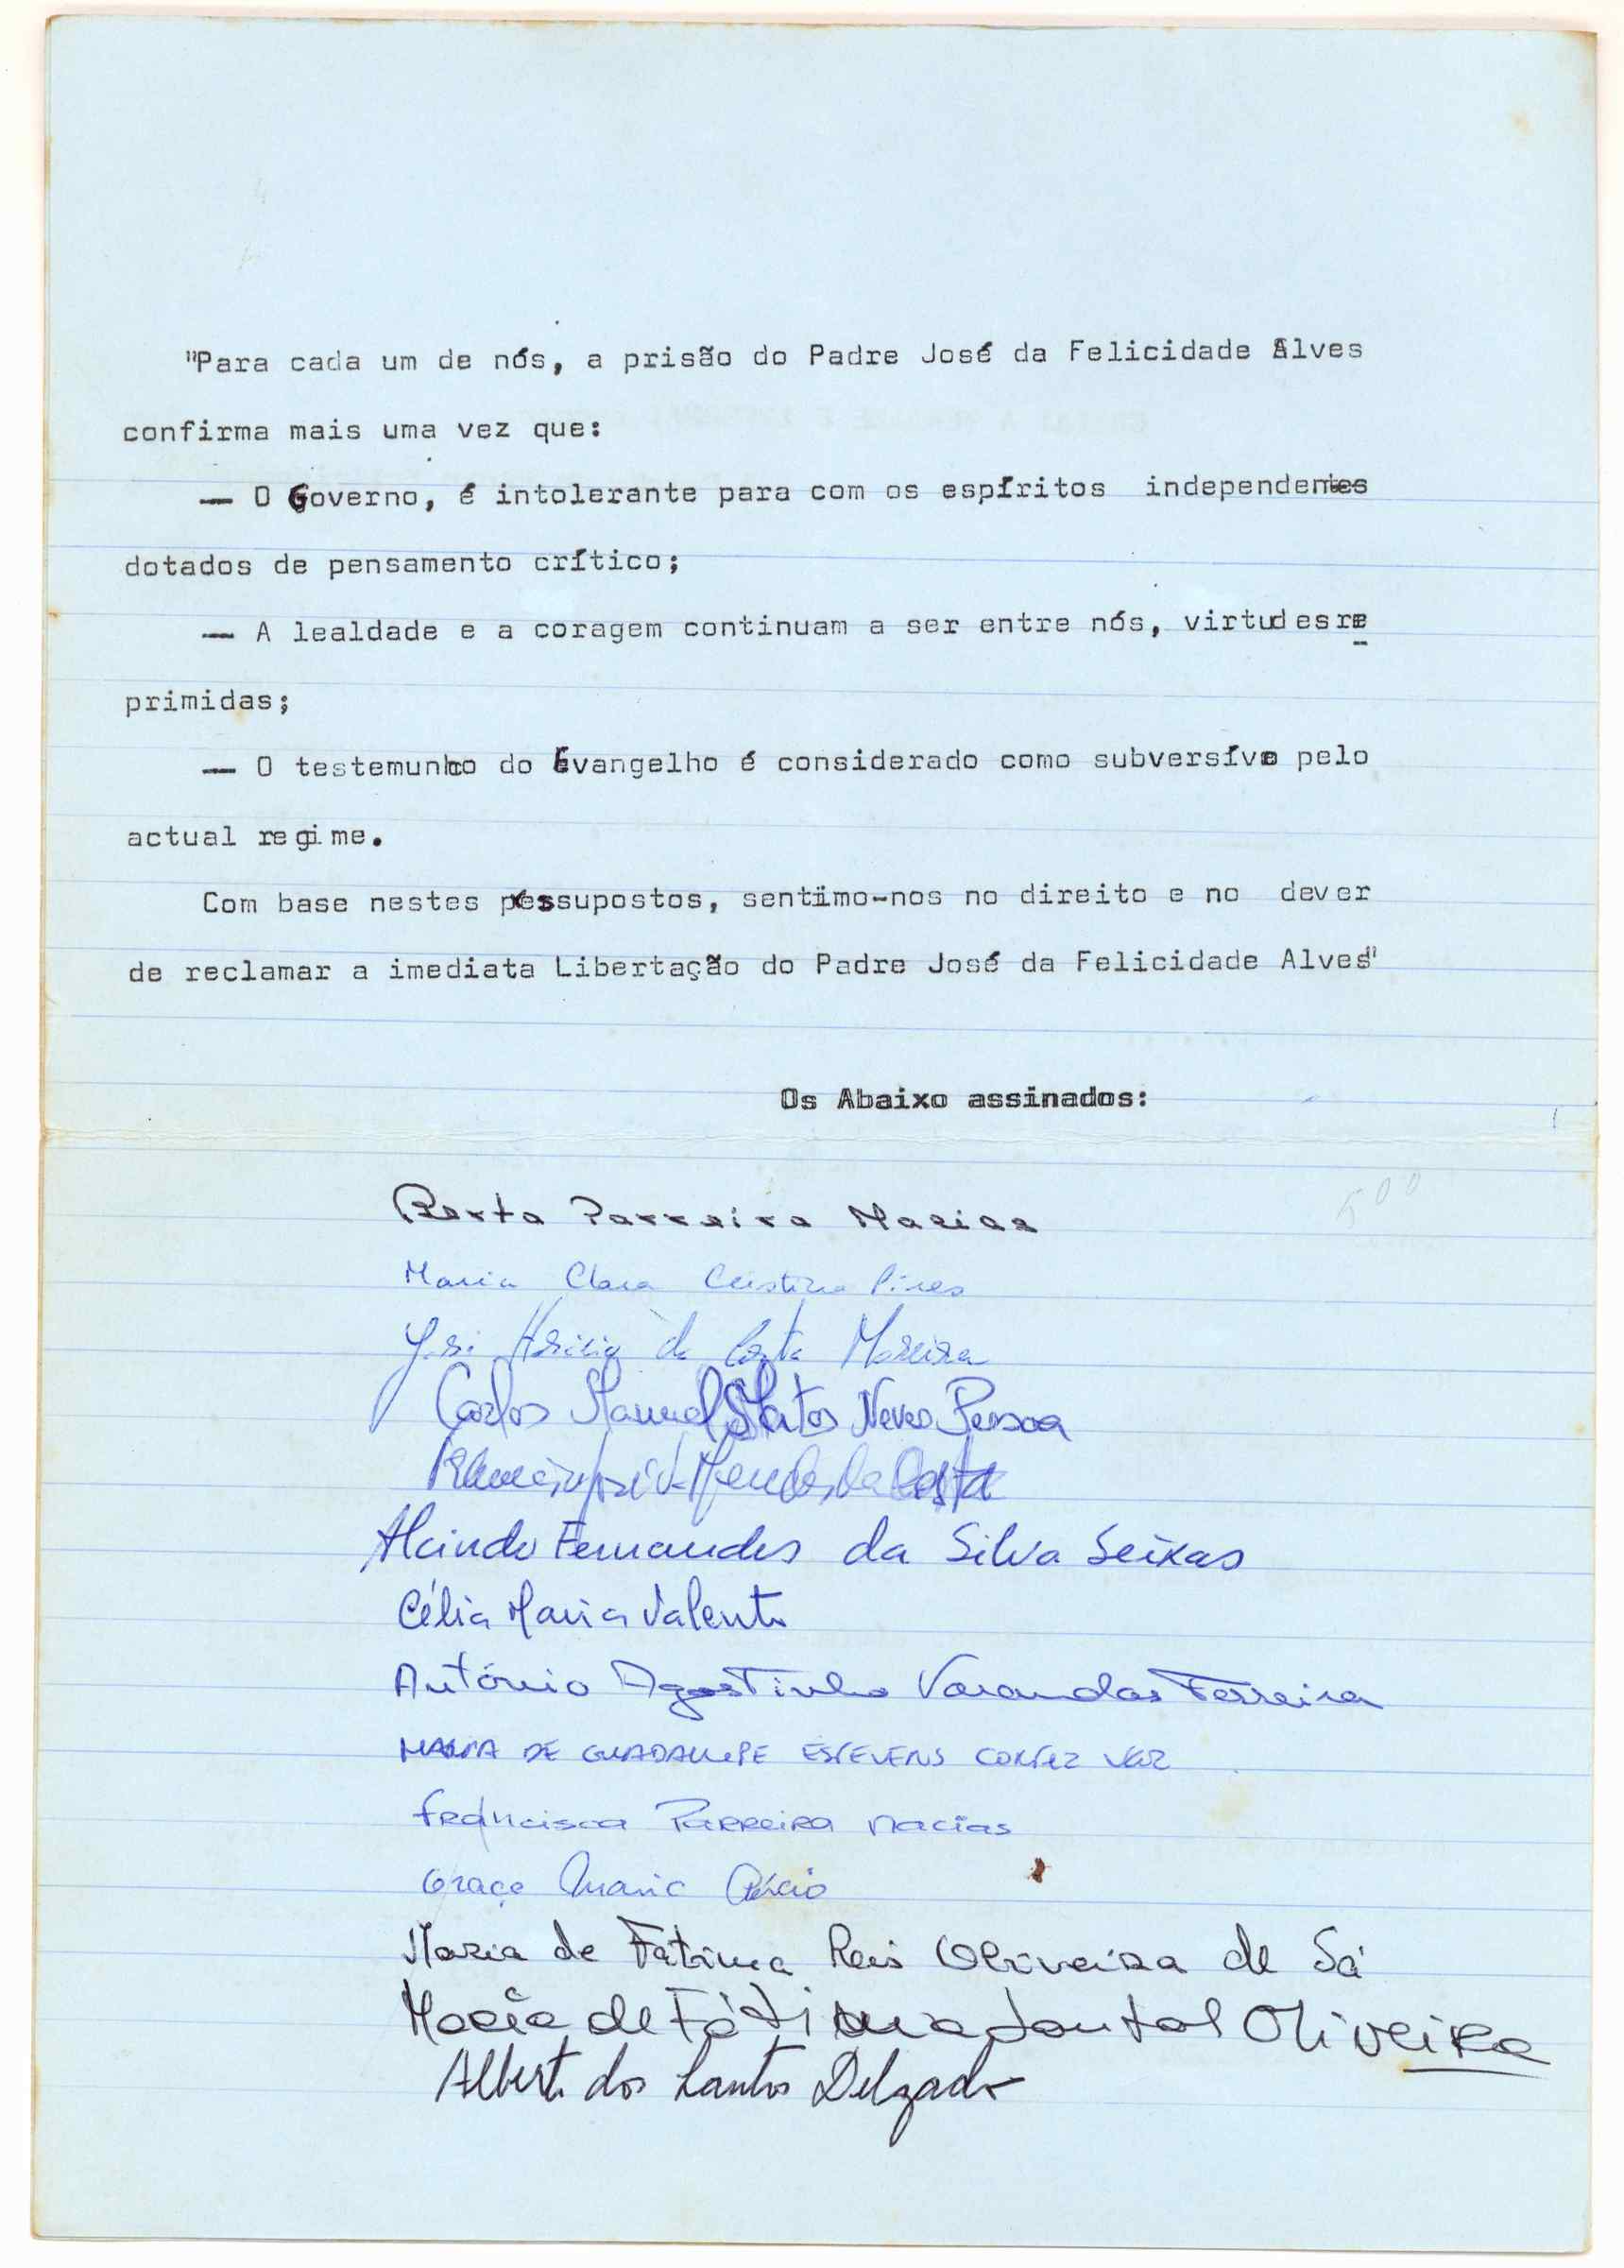 "Para cada um de nós, a prisão do Padre José da Felicidade Alves
confirma mais uma vez que:
— O Governo, é intolerante para com os espíritos independentes
dotados de pensamento crítico;
— A lealdade e a coragem continuam a ser entre nós, virtudes re
primidas;
— O testemunho do Evangelho é considerado como subversívo pelo
actual regime.
Com base nestes pressupostos, sentimo-nos no direito e no dever
de reclamar a imediata Libertação do Padre José da Felicidade Alves"
Os Abaixo assinados:
500
Berta Parreira Macias
Maria Clara Cristina Pires
da Costa Moreira
Carlos Manuel Matos Neves Pessoa
José Mendes da Costa
Alcindo Fernandes da Silva Seixas
Célia Maria Valente
António Agostinho Varandas Ferreira
MARIA DE GUADALUPE ESTEVENS CORTEZ VAZ
Francisca Parreira Macias
Graça Maria
Maria de Fátima Reis Oliveira de Sá
Maria de Fátima Oliveira
Alberto dos Santos Delgado